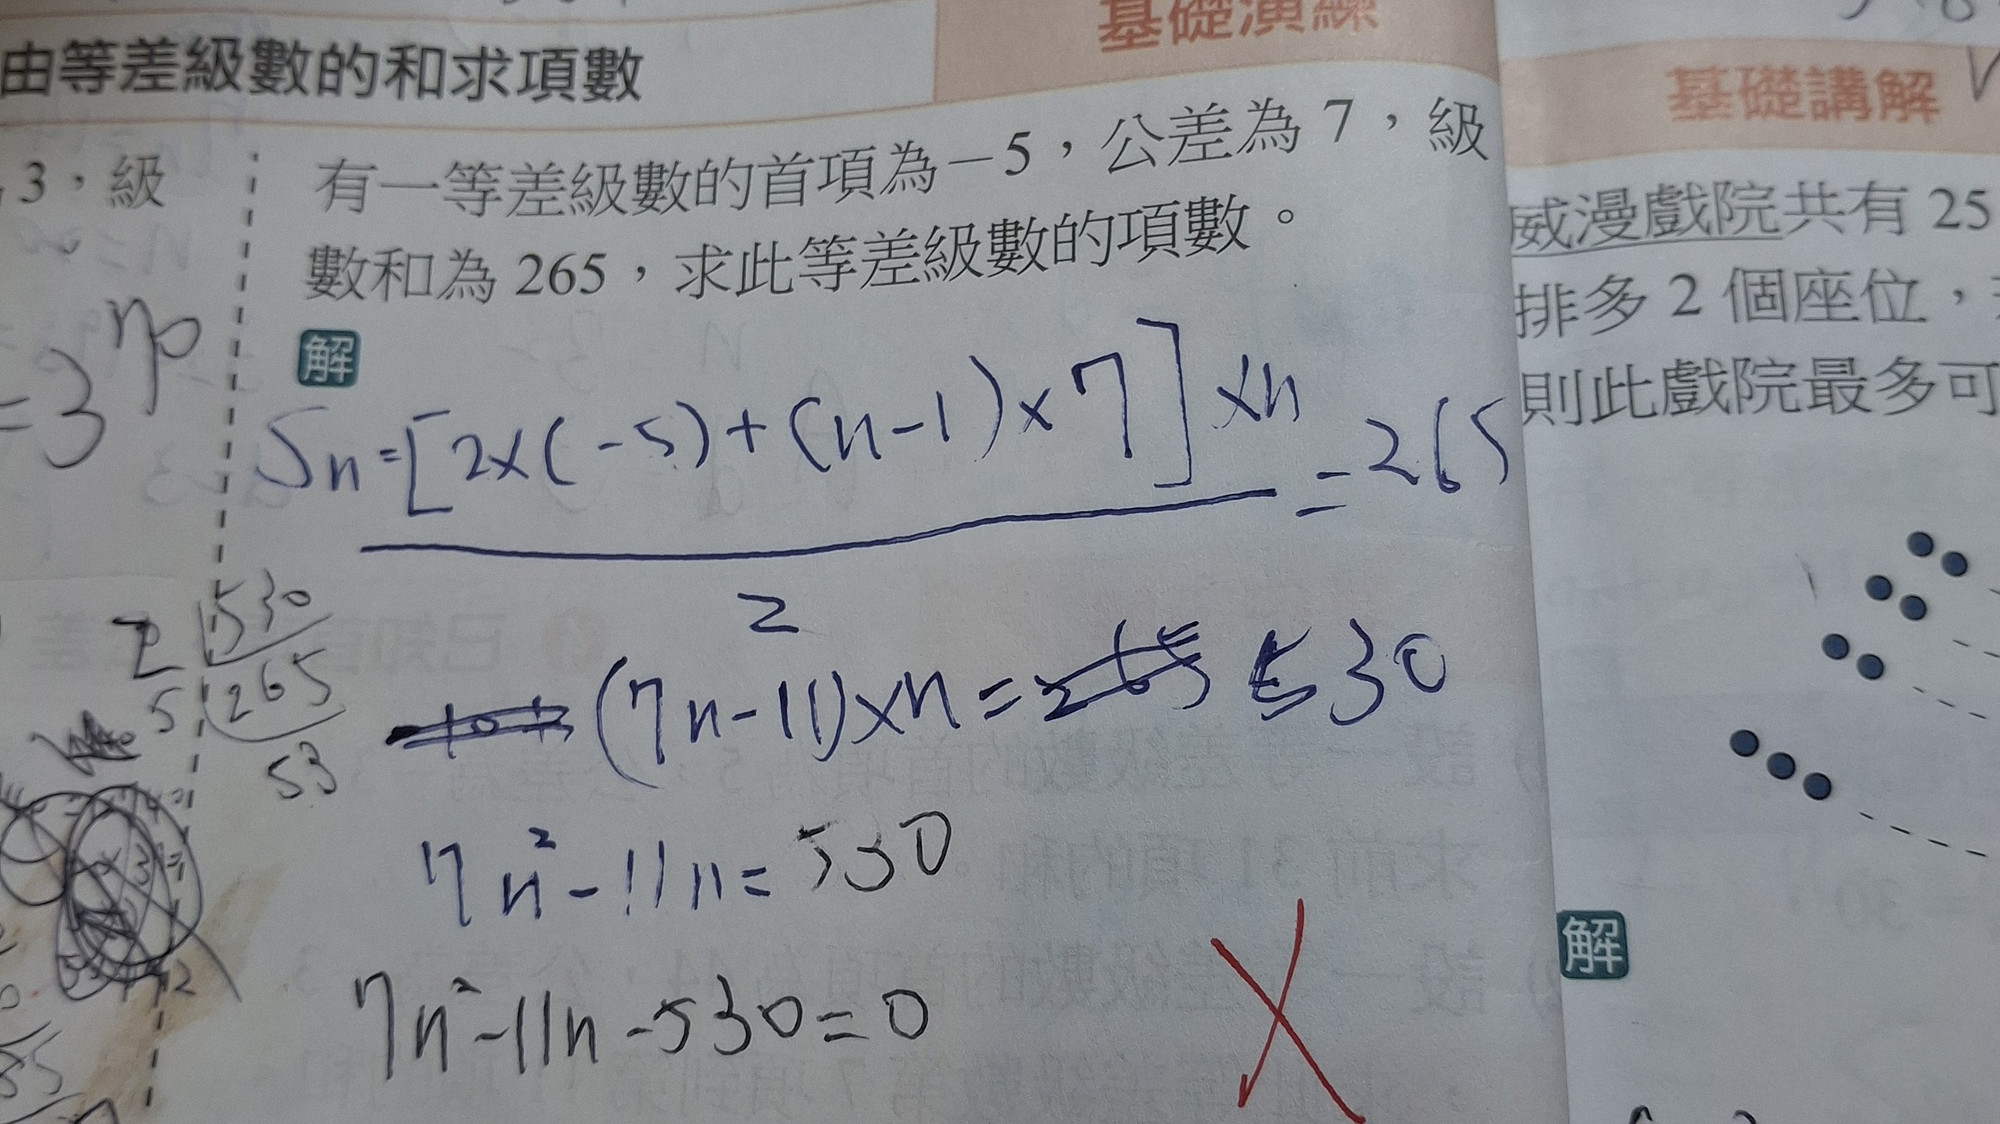 基礎演練
由等差級數的和求項數
3，級
有一等差級數的首項為－5，公差為 7，級
數和為 265，求此等差級數的項數。
解
Sn=[2×(-5)+(n-1)×7]×n
=265
2
(7n-11)×n= 530
7n²-11n=530
7n²-11n-530=0
2 530
5 265
53
基礎講解
威漫戲院共有 25
排多 2 個座位，
則此戲院最多可
解